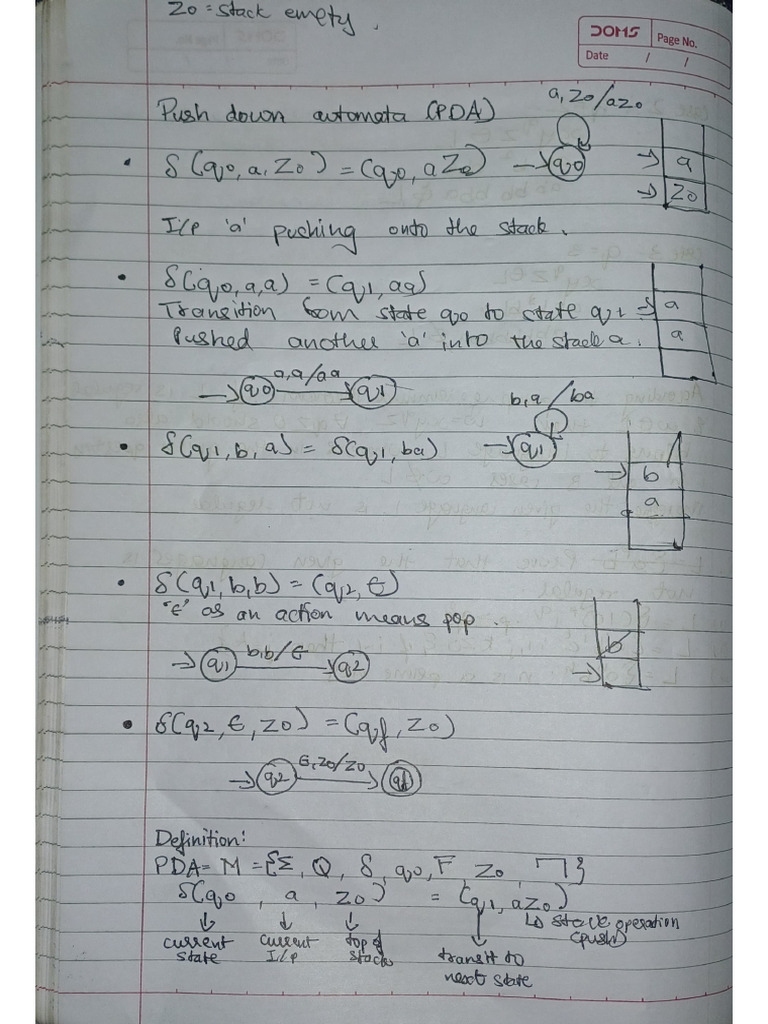 Z0 = stack emety.
DOMS Page No.
Date / /
Push down automata (PDA)
a, Z0/aZ0
• δ(q0, a, Z0) = (q0, aZ0) → q0
→ a
→ Z0
I/p 'a' pushing onto the stack.
• δ(q0, a, a) = (q1, aa)
Transition from state q0 to state q1 → a
Pushed another 'a' into the stack a. a
→ q0 a,a/aa q1
b,a/ba
• δ(q1, b, a) = δ(q1, ba) → q1
→ b
a
• δ(q1, b, b) = (q2, ϵ)
'ϵ' as an action means pop.
b
→ q1 b,b/ϵ q2
• δ(q2, ϵ, Z0) = (qf, Z0)
→ q2 ϵ, Z0/Z0 qf
Definition:
PDA = M = {Σ, Q, δ, q0, F, Z0, ㄱ}
δ(q0, a, Z0) = (q1, aZ0)
↳ stack operation
(push)
current state
current I/p
top of stack
transit to next state